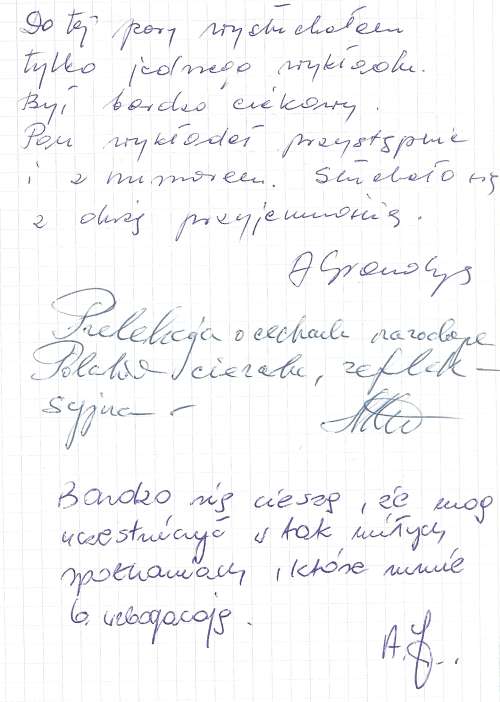 Do tej pory wysłuchałem
tylko jednego wykładu.
Był bardzo ciekawy.
Pan wykładał przystępnie
i z humorem. Słuchało się
z dużą przyjemnością.
Prelekcja o cechach narodowych
Polaków ciekawa, reflek-
syjna -
Bardzo się cieszę, że mogę
uczestniczyć w tak miłych
spotkaniach, które mnie
b. ubogacają.
A.